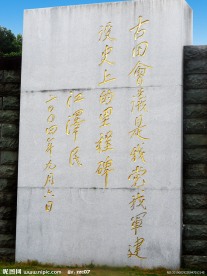 古田會議是我黨我軍建
設史上的里程碑
江澤民
一九九四年九月六日
昵图网 www.nipic.com